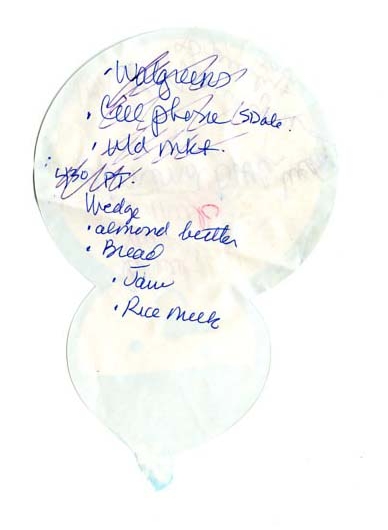 · Walgreens
· Cell phone / SDale.
· Wld mkt.
· 4:30 PT.
Wedge
· almond butter
· Bread
· Jam
· Rice milk